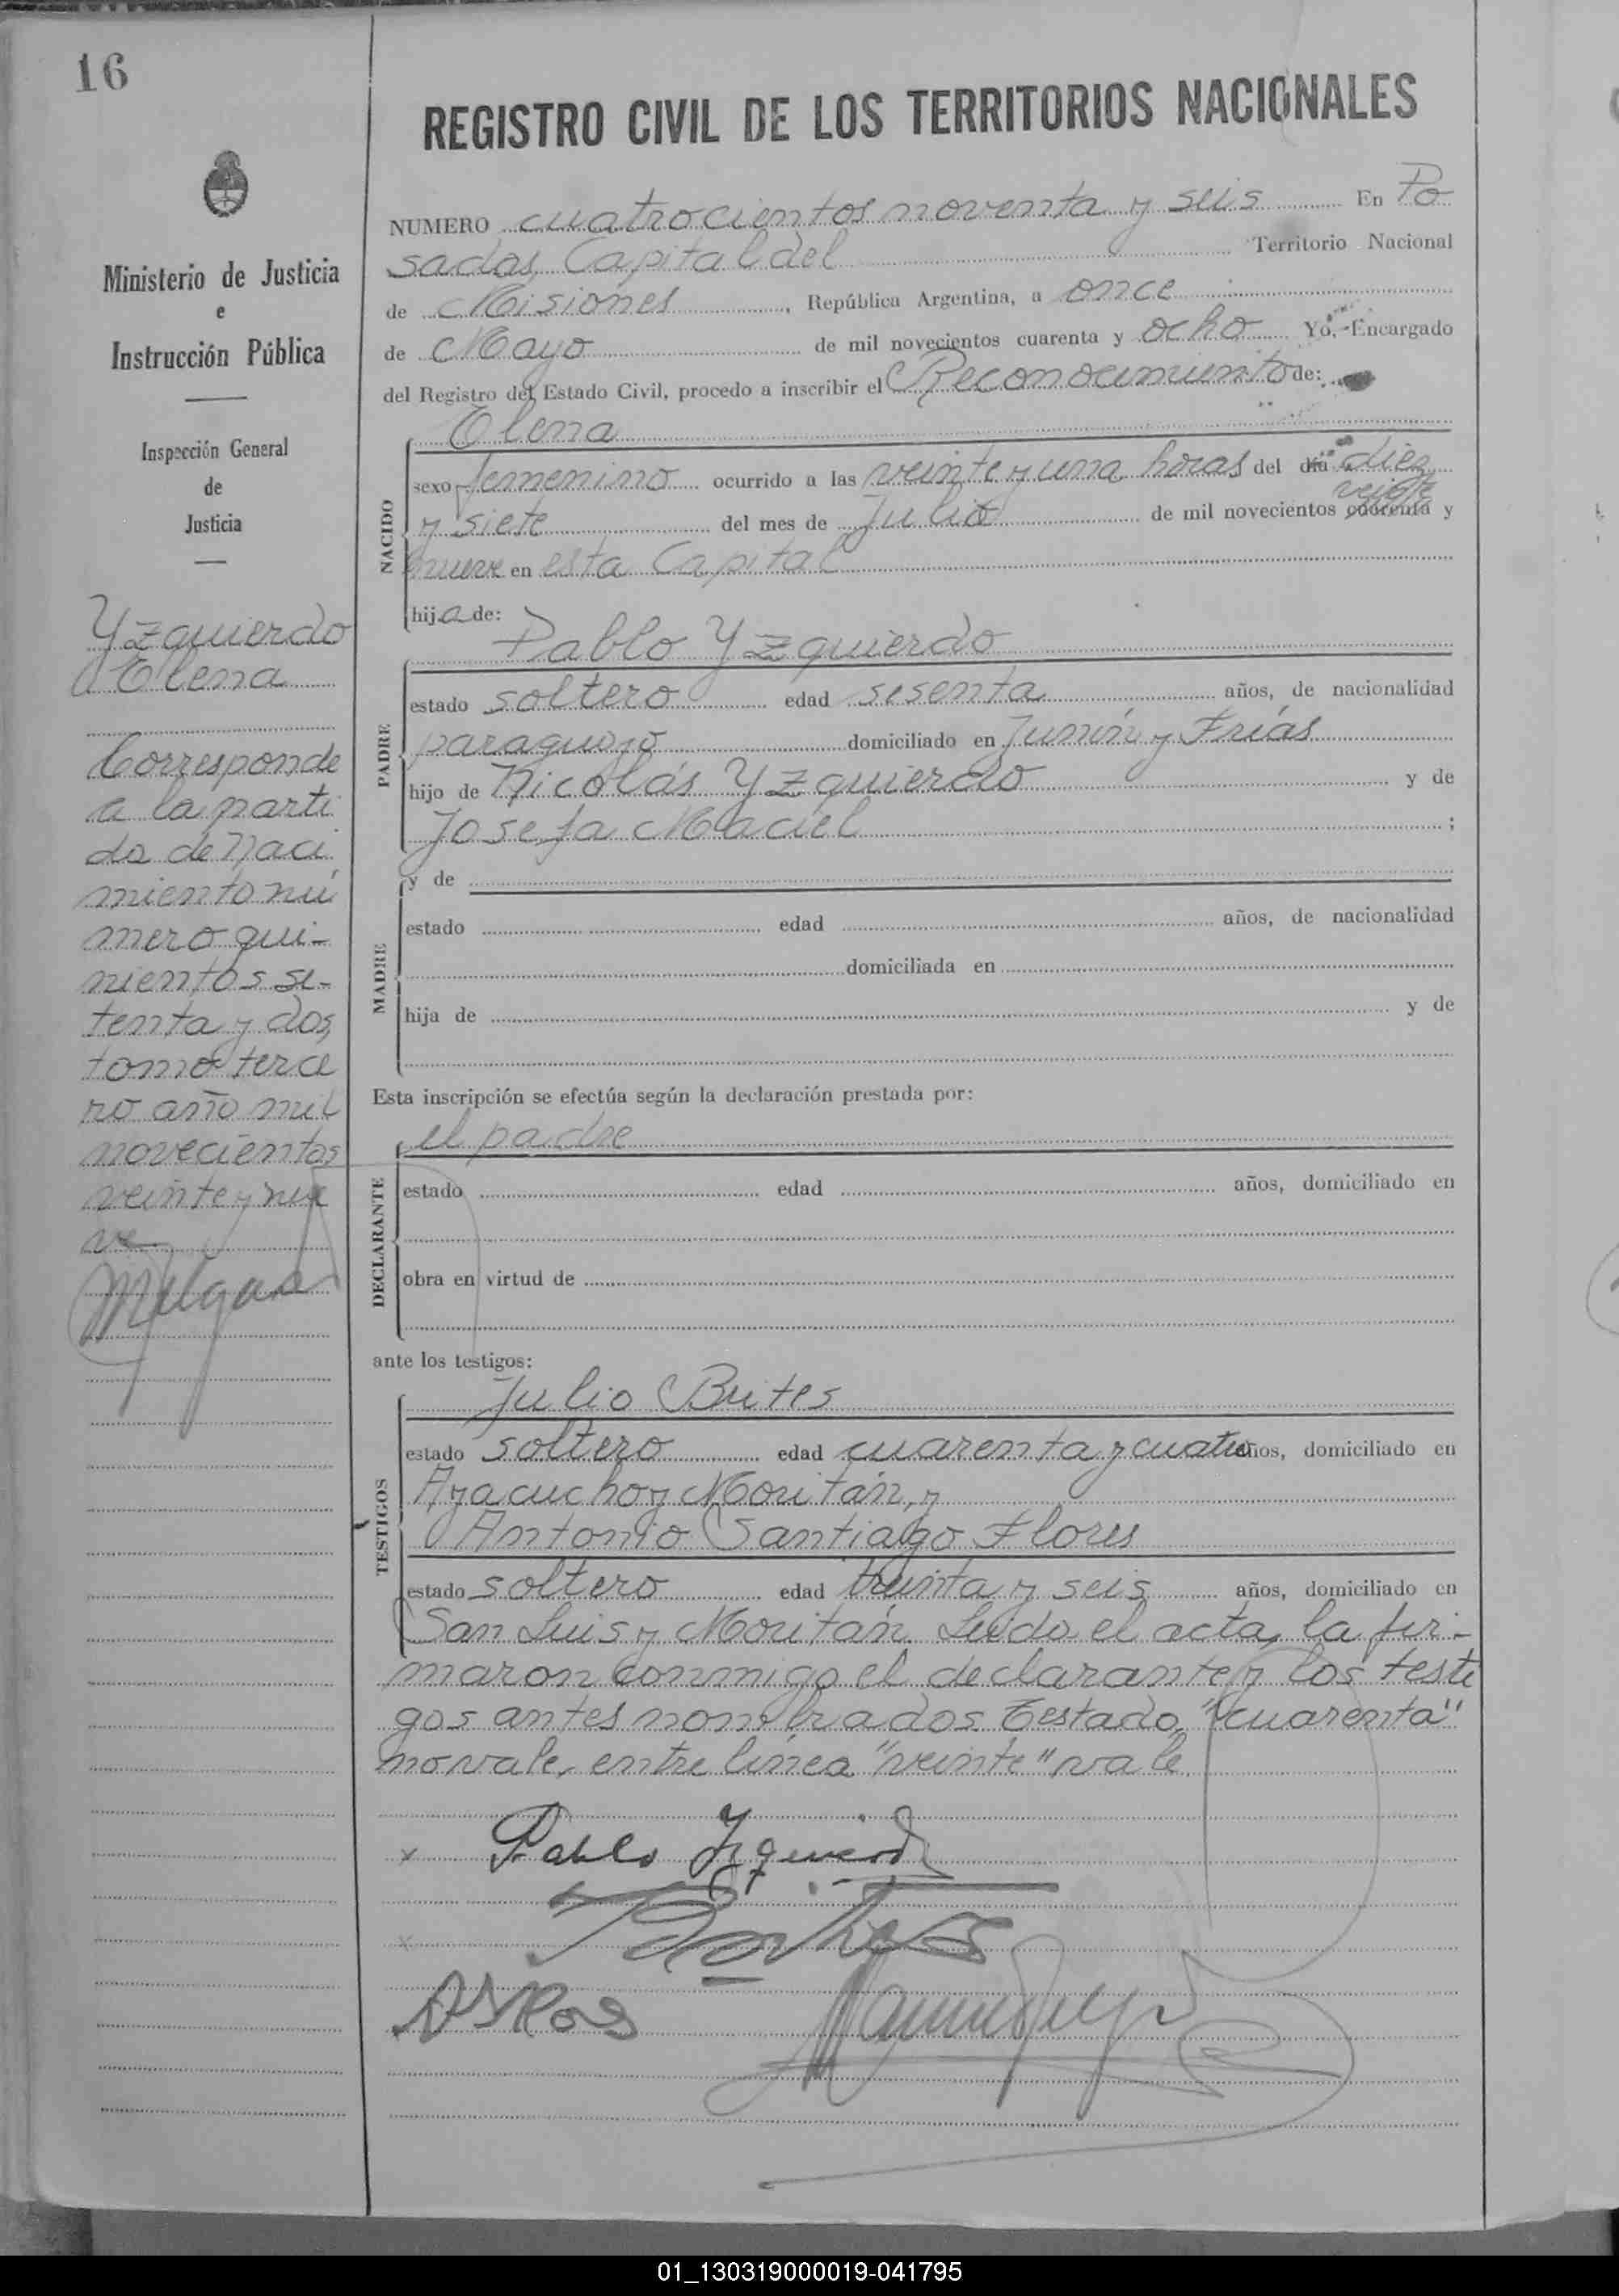 16
REGISTRO CIVIL DE LOS TERRITORIOS NACIONALES
Ministerio de Justicia
e
Instrucción Pública
Inspección General
de
Justicia
Yzquierdo
Elena
Corresponde
a la parti
da de Naci
miento nú
mero qui-
nientos se-
tenta y dos,
tomo terce
ro año mil
novecientos
veinte y nue
ve
NUMERO cuatrocientos noventa y seis En Po
sadas, Capital del Territorio Nacional
de Misiones, República Argentina, a once
de Mayo de mil novecientos cuarenta y ocho Yo, Encargado
del Registro del Estado Civil, procedo a inscribir el Reconocimiento de:
Elena
NACIDO
sexo femenino ocurrido a las veinte y una horas del día diez
veinte
y siete del mes de Julio de mil novecientos cuarenta y
nueve en esta Capital
hija de:
Pablo Yzquierdo
PADRE
estado soltero edad sesenta años, de nacionalidad
paraguayo domiciliado en Junín y Frías
hijo de Nicolás Yzquierdo y de
Josefa Maciel ;
y de
MADRE
estado edad años, de nacionalidad
domiciliada en
hija de y de
Esta inscripción se efectúa según la declaración prestada por:
el padre
DECLARANTE
estado edad años, domiciliado en
obra en virtud de
ante los testigos:
Julio Brites
TESTIGOS
estado soltero edad cuarenta y cuatro años, domiciliado en
Ayacucho y Moritán, y
Antonio Santiago Flores
estado soltero edad treinta y seis años, domiciliado en
San Luis y Moritán. Leída el acta, la fir-
maron conmigo el declarante y los testi
gos antes nombrados. Testado "cuarenta"
no vale, entre línea "veinte" vale.
Pablo Izquierdo
01_130319000019-041795